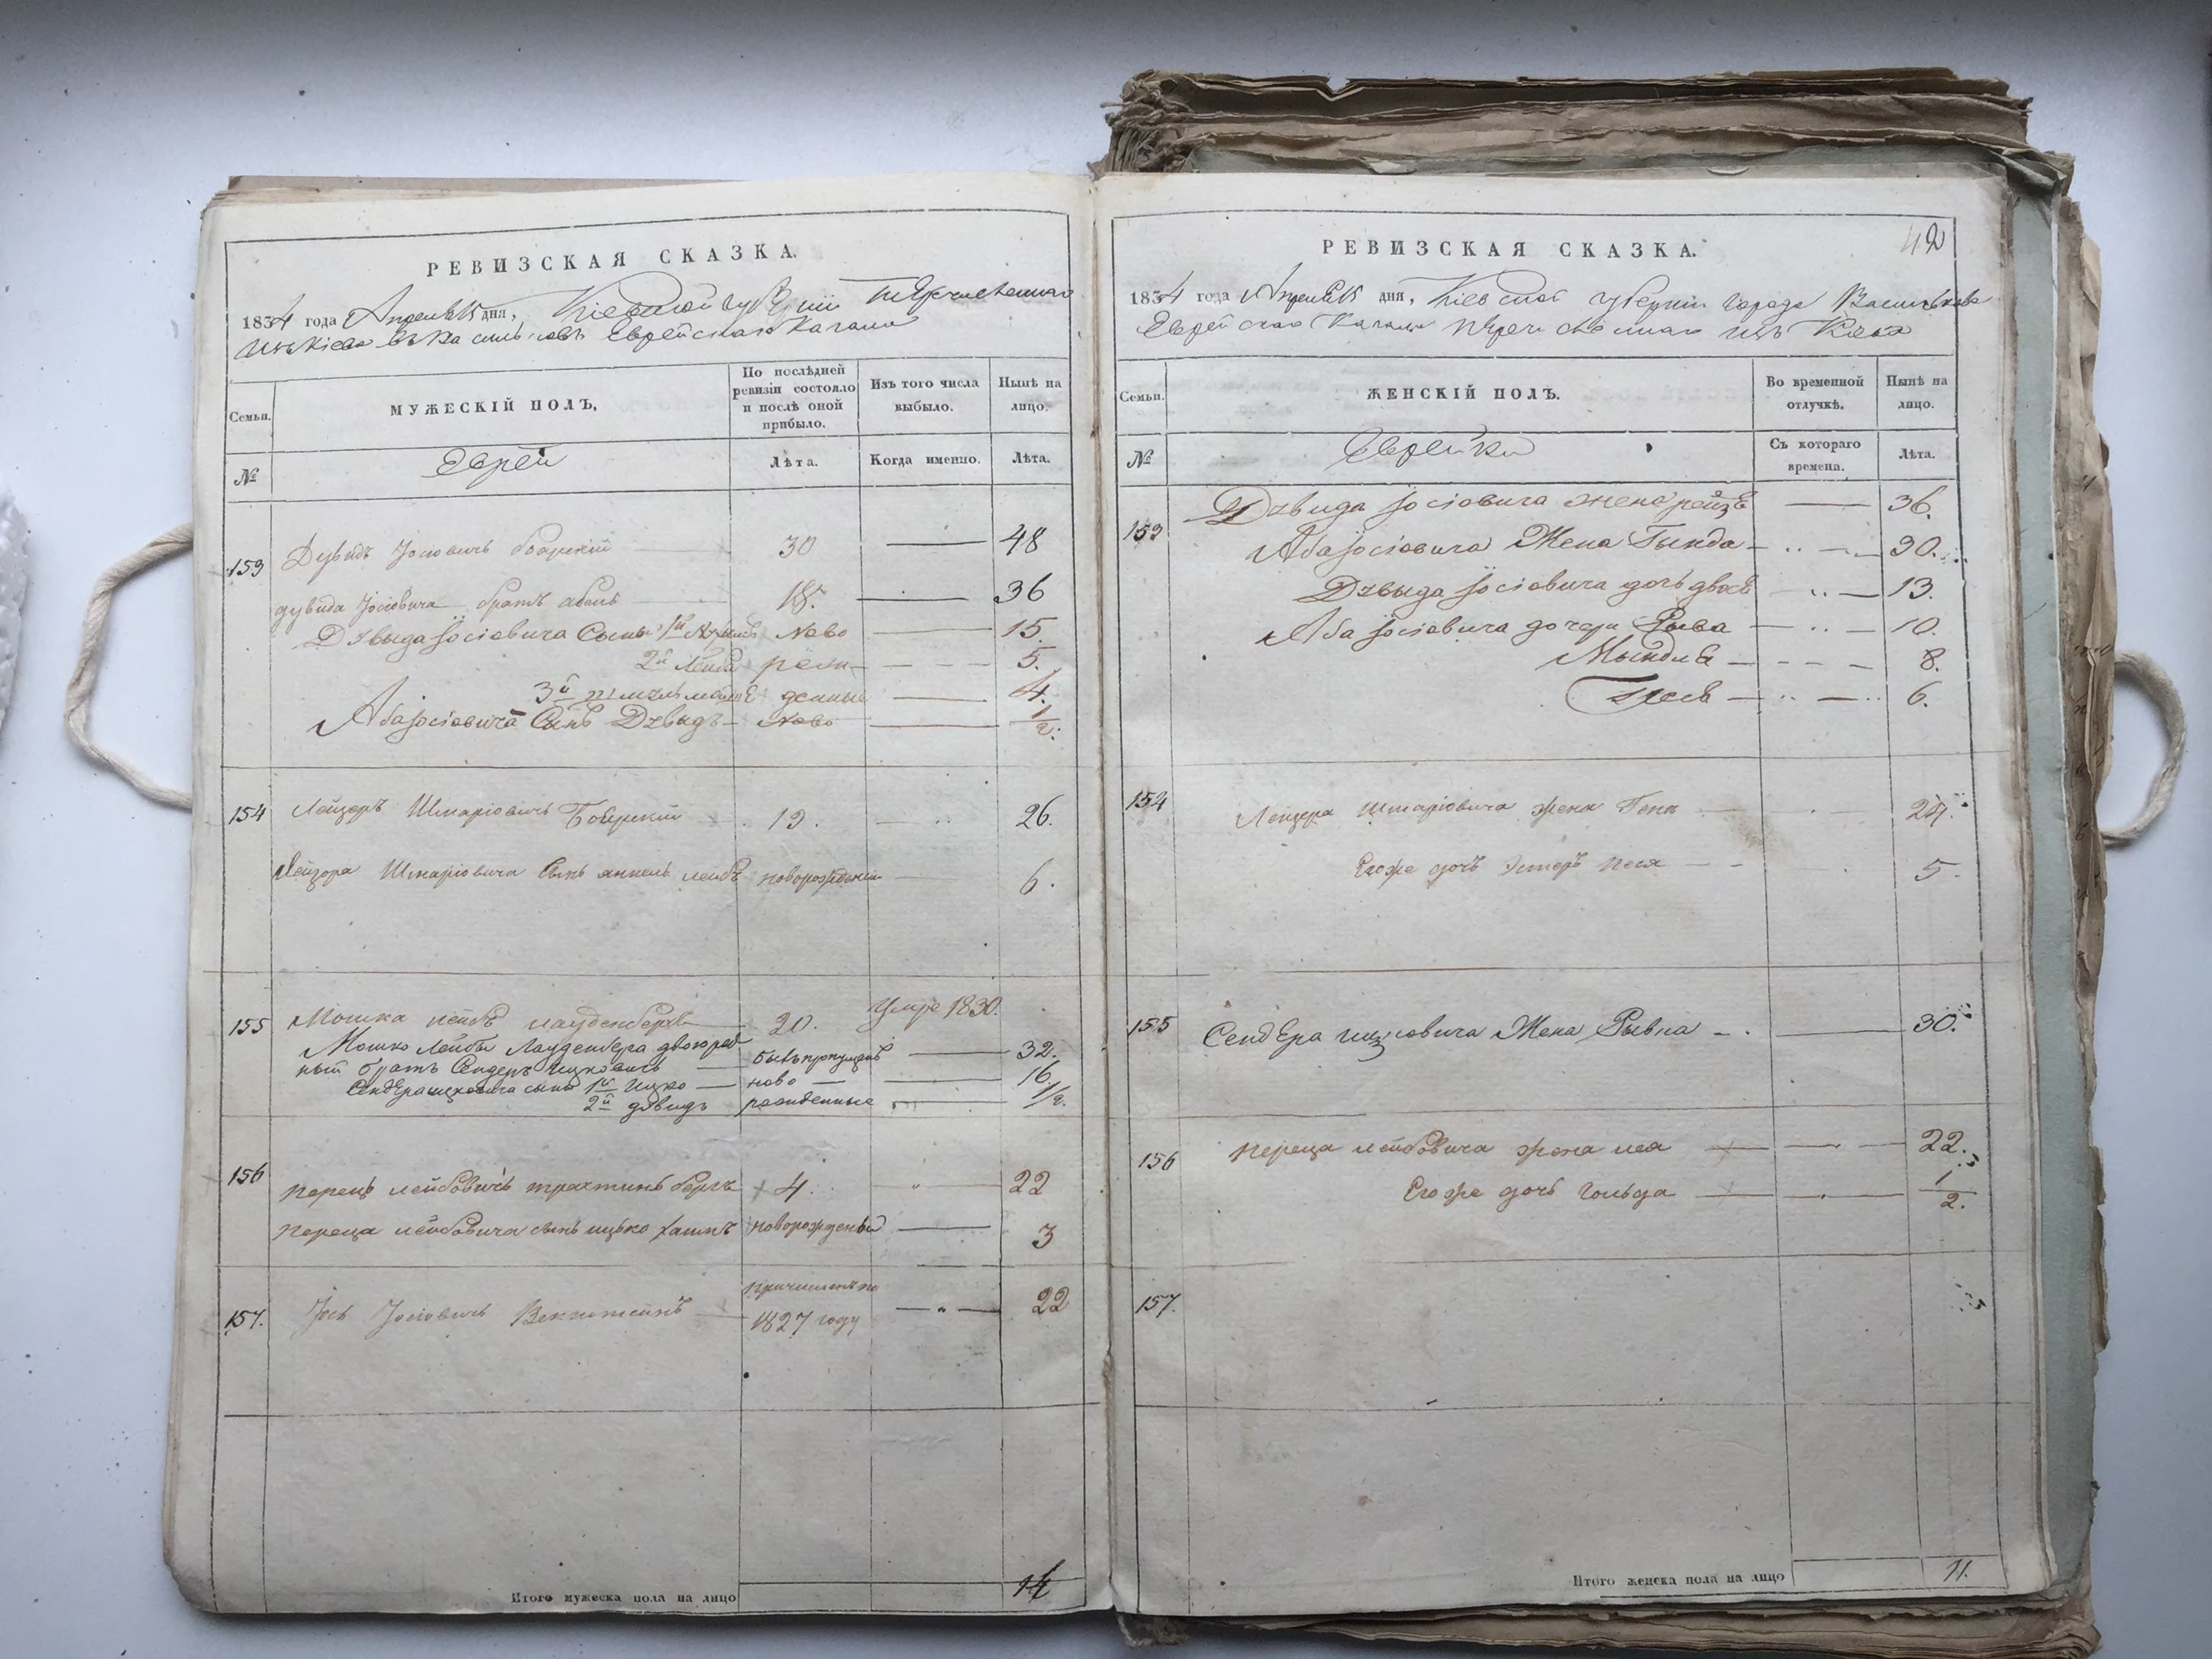 РЕВИЗСКАЯ СКАЗКА.
1834 года Апреля 15 дня, Кіевской губерніи перечисленнаго
изъ Кіева въ Васильковъ Еврейскаго Кагала
Семьи.
МУЖЕСКІЙ ПОЛЪ,
По послѣдней ревизіи состояло и послѣ оной прибыло.
Изъ того числа выбыло.
Нынѣ на лицо.
№
Еврей
Лѣта.
Когда именно.
Лѣта.
153 Дувидъ Іосіовичъ 30 48
дувида Іосіовича братъ абель 18. 36
Дувыда Іосіовича Сыны 1й ново 15.
2й Лейба рожа 5.
3й денные 4.
Аба Іосіовича Сынъ Дувыдъ ново 1/2.
154 Лейзеръ Шмаріовичъ Боярскій 19. 26.
Лейзора Шмаріовича Сынъ янкель лейбъ новорожденій 6.
155 Мошка лейбъ лауденберхъ 20. Умре 1830.
Мошко Лейбы Лауденберга двоюрод
ный братъ Сендеръ Ицковичъ былъ пропущенъ 32.
Сендера ицковича сыны 1й Ицко ново 16
2й дувидъ рожденные 1/2.
156 перецъ лейбовичъ трахтинъ бергъ 4. 22
переца лейбовича сынъ ицько хаимъ новорожденый 3
157. Іось Іосіовичъ Векштейнъ причисленъ по 22
1827 году
Итого мужеска пола на лицо 14
42
РЕВИЗСКАЯ СКАЗКА.
1834 года Апреля 15 дня, Кіевской губерніи города Василькова
Еврейскаго Кагала перечисленнаго изъ Кіева
Семьи.
ЖЕНСКІЙ ПОЛЪ.
Во временной отлучкѣ.
Нынѣ на лицо.
№
Еврейки
Съ котораго времена.
Лѣта.
153 Дувида Іосіовича жена рейзя 36.
Аба Іосіовича Жена Гында 30.
Дувыда Іосіовича дочь двося 13.
Аба Іосіовича дочери Рыва 10.
Мындля 8.
6.
154 Лейзера Шмаріовича жена Геня 24.
Егоже дочь Эстеръ песя 5.
155 Сендера ицковича Жена Рывка 30.
156 переца лейбовича жена лея 22.
Егоже дочь гольда 1/2.
157.
Итого женска пола на лицо 11.